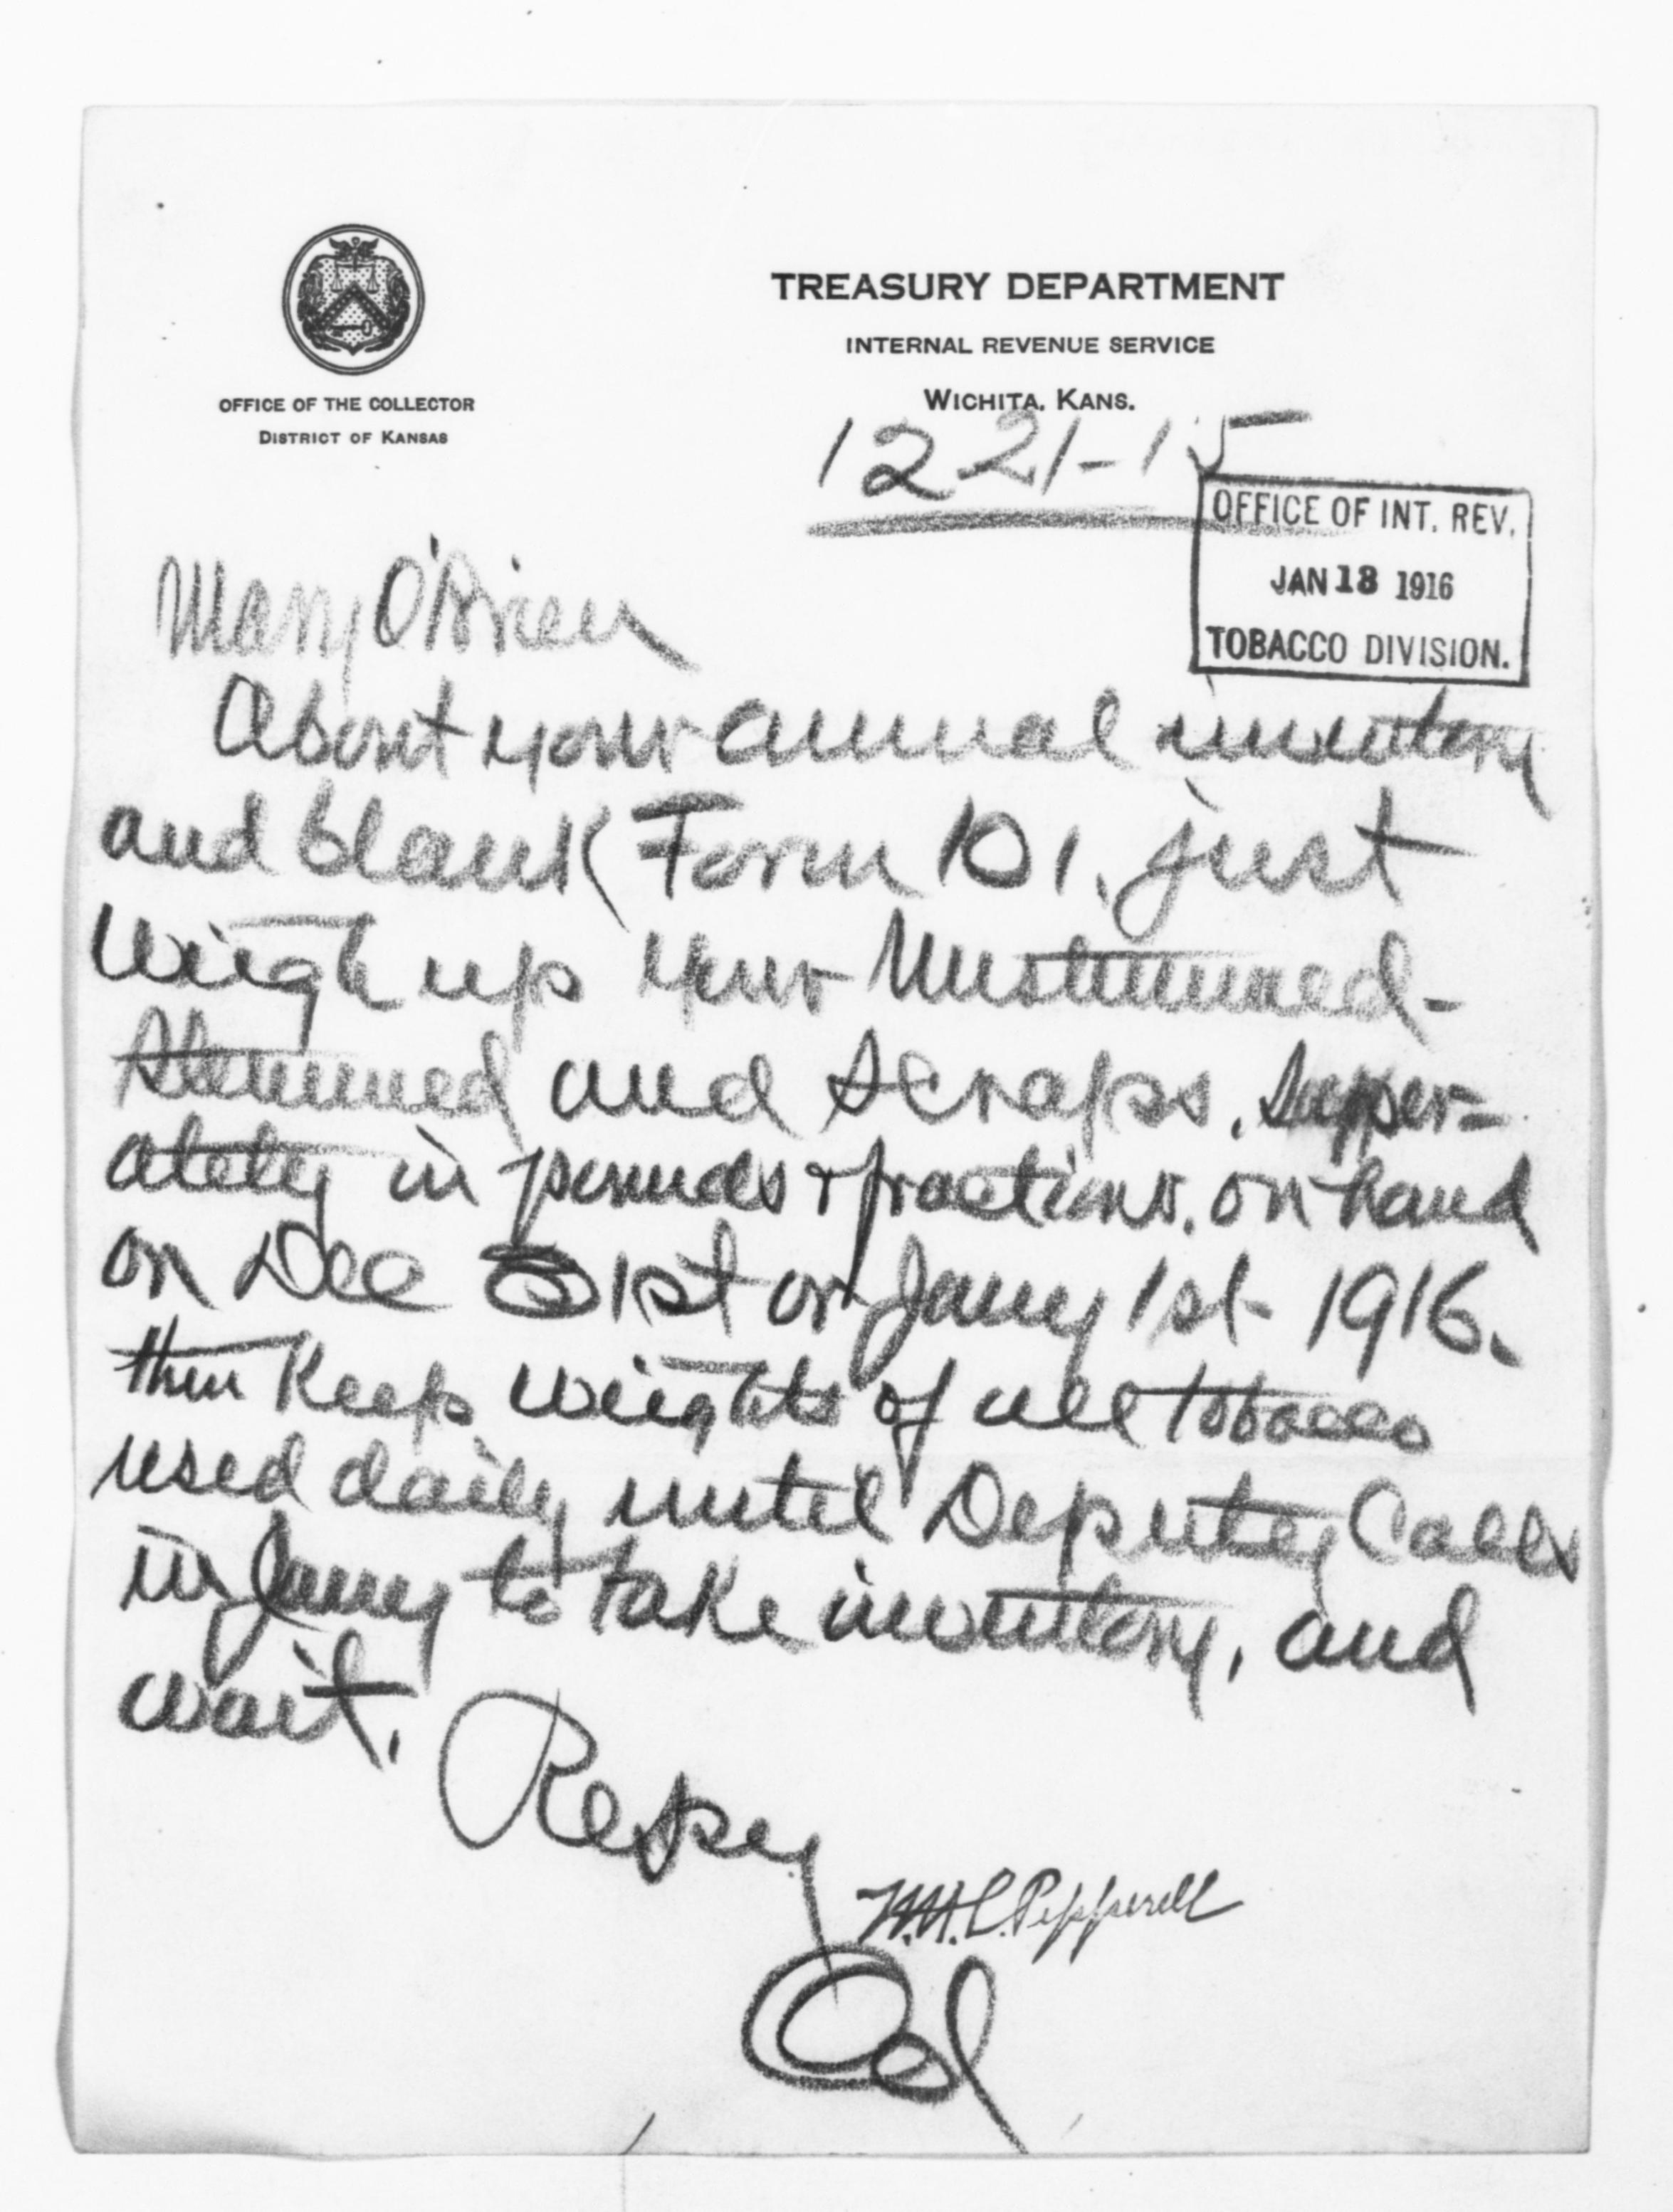 TREASURY DEPARTMENT
INTERNAL REVENUE SERVICE
WICHITA, KANS.
OFFICE OF THE COLLECTOR
DISTRICT OF KANSAS
12-21-15
OFFICE OF INT. REV.
JAN 13 1916
TOBACCO DIVISION.
Mary O'Brien
About your annual inventory
and blank Form 101, just
weigh up your Unstemmed-
Stemmed and Scraps. Supper=
ately in pounds & fractions. on hand
on Dec 31st or Jany 1st 1916.
then keep weights of all tobacco
used daily until Deputy Calls
in Jany to take inventory, and
wait.
Respy
W.H.L. Pepperell
Col